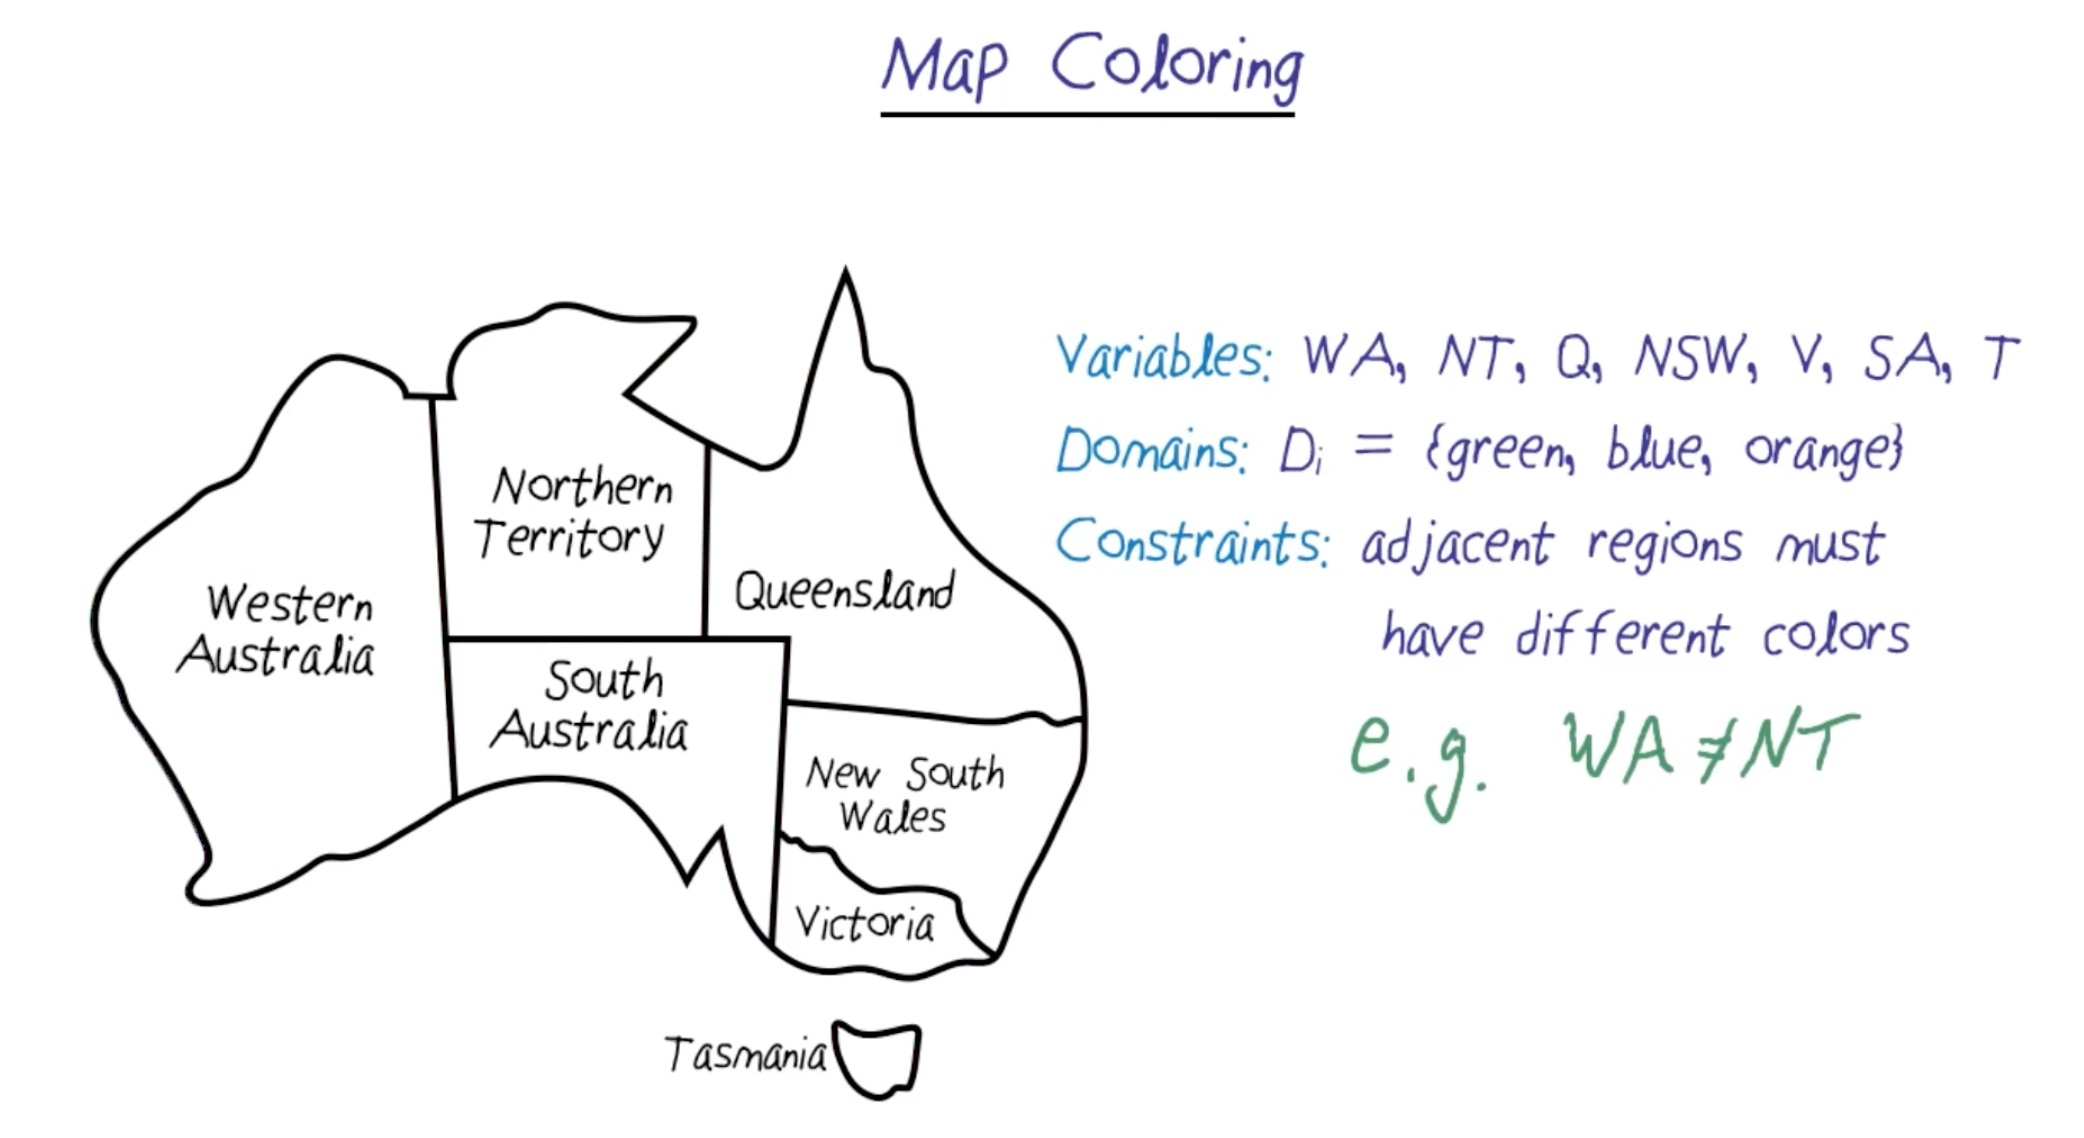 Map Coloring
Northern
Territory
Western
Australia
Queensland
South
Australia
New South
Wales
Victoria
Tasmania
Variables: WA, NT, Q, NSW, V, SA, T
Domains: Di = {green, blue, orange}
Constraints: adjacent regions must
have different colors
e.g. WA ≠ NT